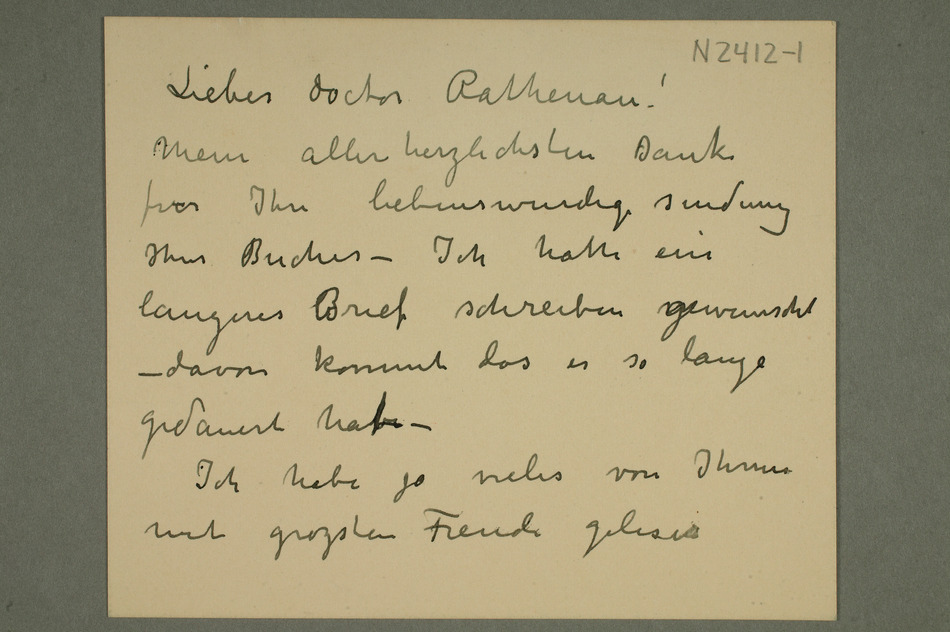 N2412-1
Lieber Doctor Rathenau!
Mein aller herzlichsten Dank
fuer Ihre liebenswurdige sendung
Ihres Buches – Ich hatte ein
langeres Brief schreiben gewunscht
– davon kommt das es so lange
gedauert habe –
Ich habe ja vieles von Ihnen
mit grozsten Freude gelesen